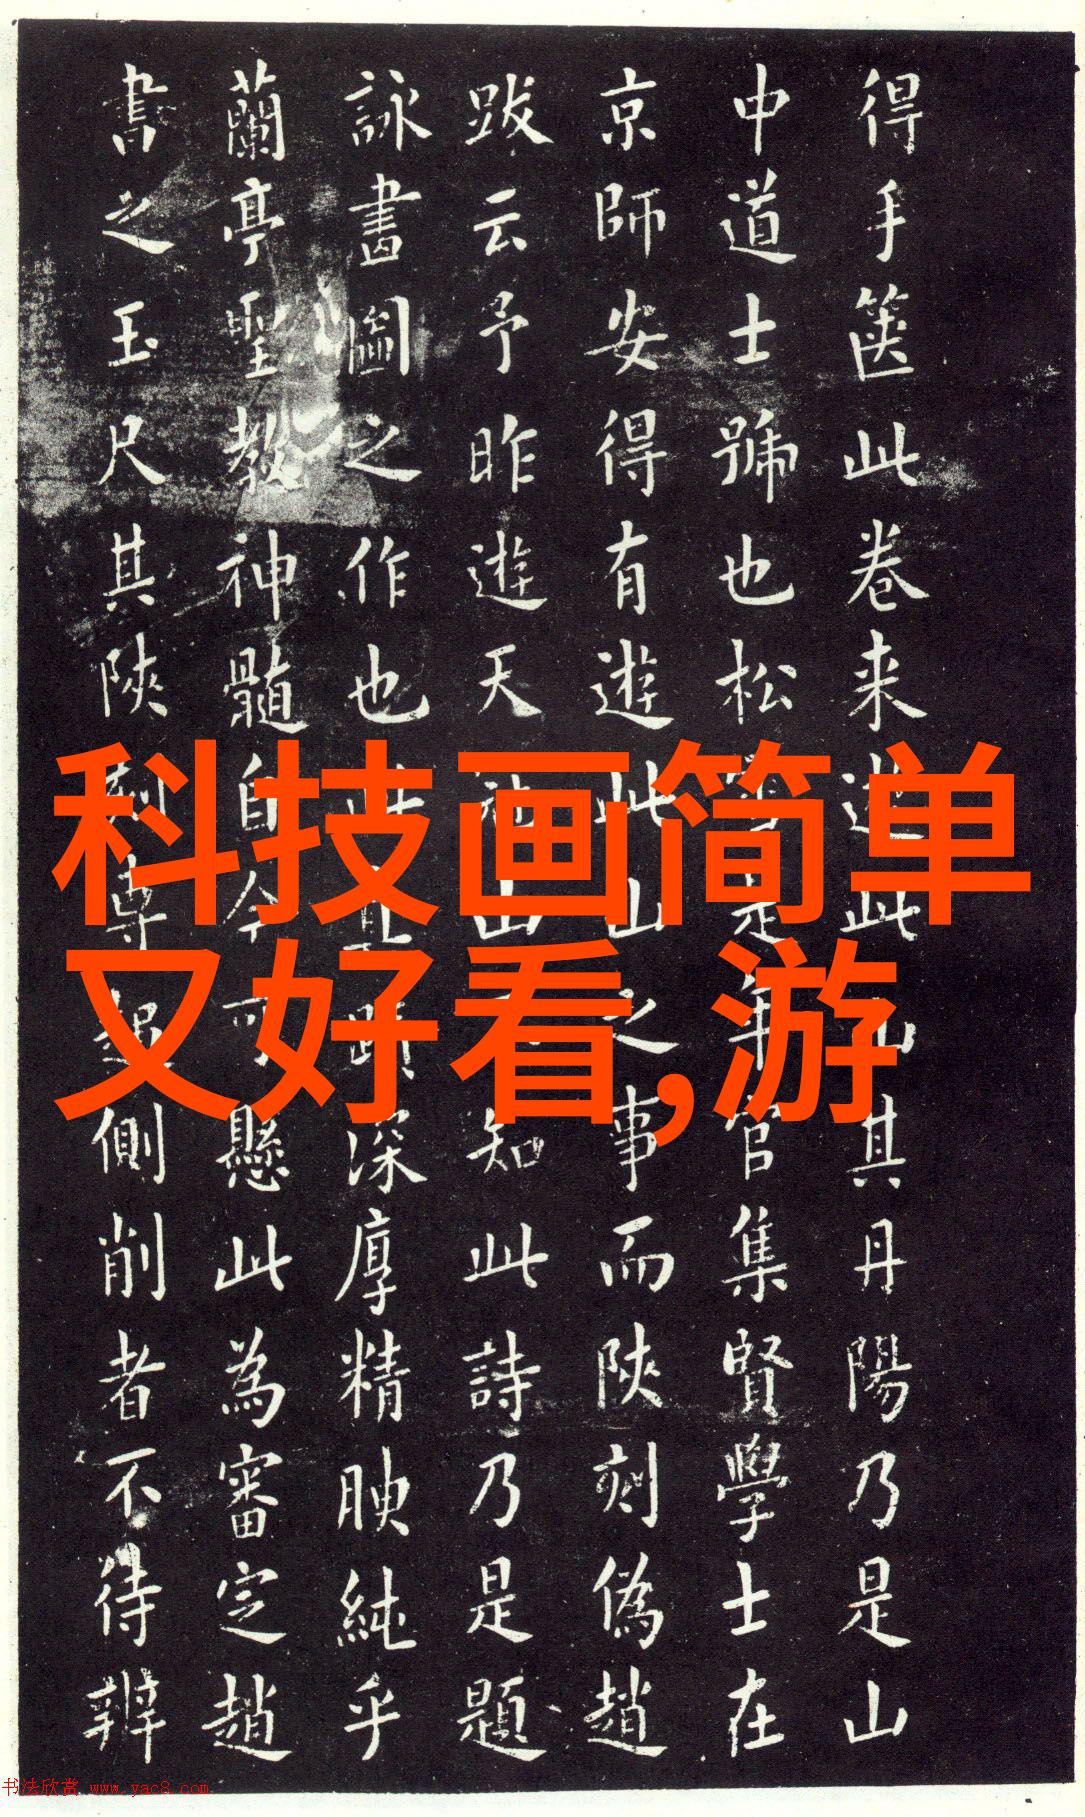 得手箧此卷来遊此山其丹陽乃是山
中道士號也松是年官集賢學士在
京師安得有遊此山之事而陝刻偽趙
跋云予昨遊天山知此詩乃是題
詠畫圖之作也此深厚精腴純乎
蘭亭聖教神髓自今可懸此為審定趙
書之玉尺其陝刻專側削者不待辨
科技画简单
又好看,游
书法欣赏 www.yac8.com